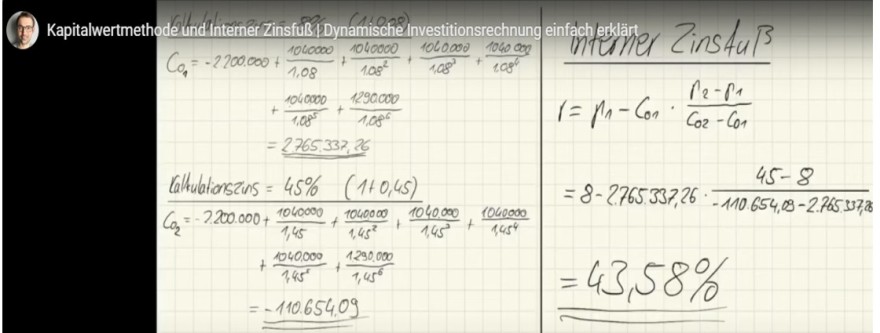 Kapitalwertmethode und Interner Zinsfuß | Dynamische Investitionsrechnung einfach erklärt
Kalkulationszins = 8% (1+0,08)
C₀₁ = -2.200.000 + 1040000/1,08 + 1040000/1.08² + 1040.000/1.08³ + 1040000/1.08⁴
+ 1040000/1.08⁵ + 1290.000/1,08⁶
= 2.765.337,26
Kalkulationszins = 45% (1+0,45)
C₀₂ = -2.200.000 + 1040000/1,45 + 1040000/1,45² + 1040000/1,45³ + 1040000/1,45⁴
+ 1040.000/1,45⁵ + 1290.000/1,45⁶
= -110.654,09
Interner Zinsfuß
r = p₁ - C₀₁ · p₂-p₁/C₀₂-C₀₁
= 8-2.765.337,26 · 45-8/-110.654,09-2.765.337,26
= 43,58%